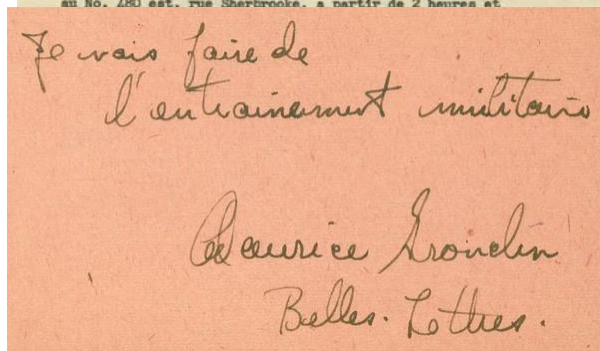 au No. 480 est, rue Sherbrooke, a partir de 2 heures et
Je vais faire de
l'entrainement militaire
Maurice Grondin
Belles-Lettres.